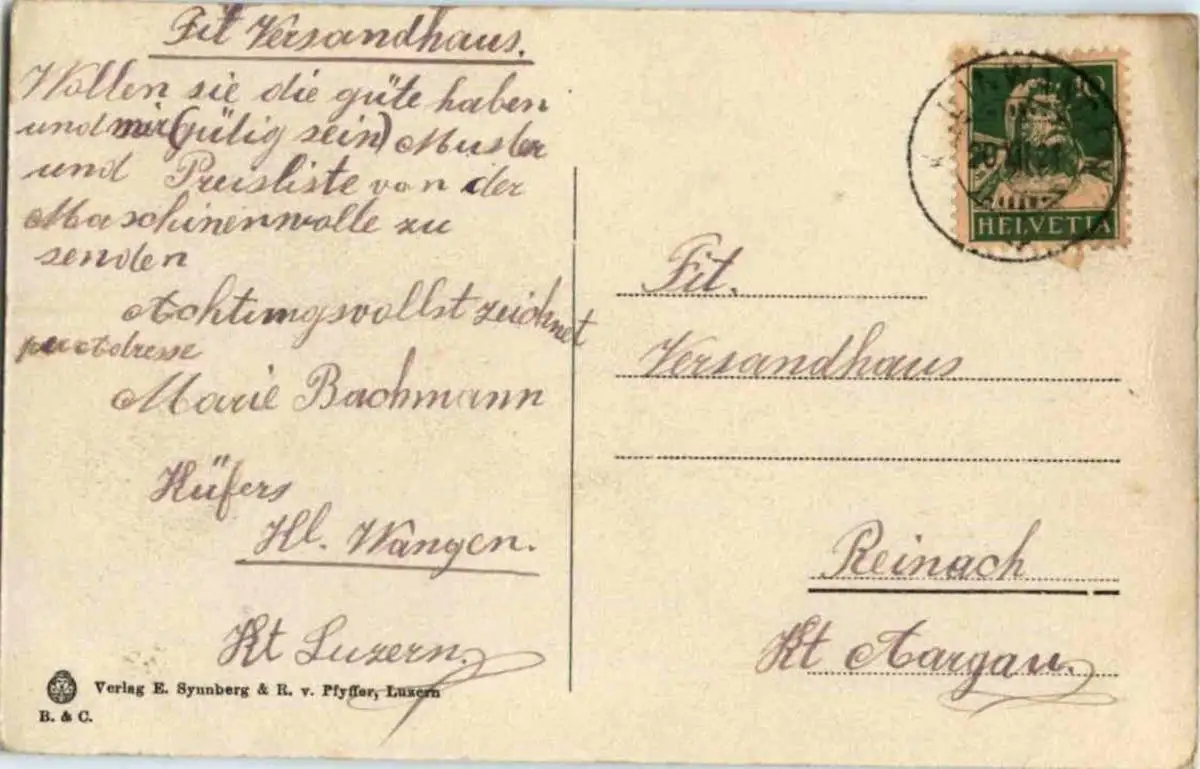 Fit Versandhaus.
Wollen sie die güte haben
und mir (gütig sein) Muster
und Preisliste von der
Maschinenwolle zu
senden
Achtungsvollst zeichnet
Adresse
Marie Bachmann
Küfers
Kl. Wangen.
Kt Luzern.
Verlag E. Synnberg & R. v. Pfyffer, Luzern
B. & C.
10
HELVETIA
Fit.
Versandhaus
Reinach
Kt Aargau.